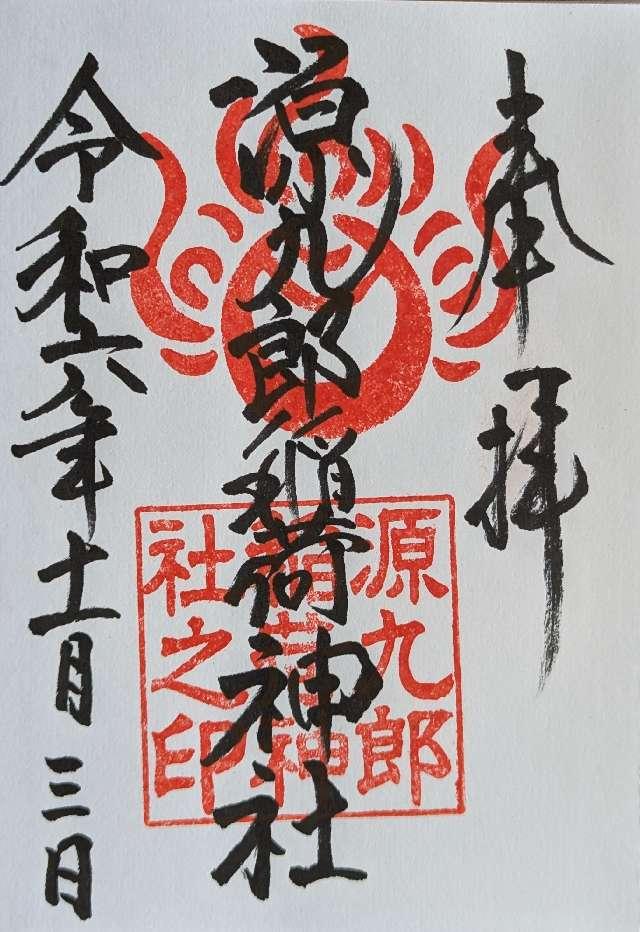 奉拝
源九郎稲荷神社
令和六年十一月三日
源九郎
稲荷神
社之印